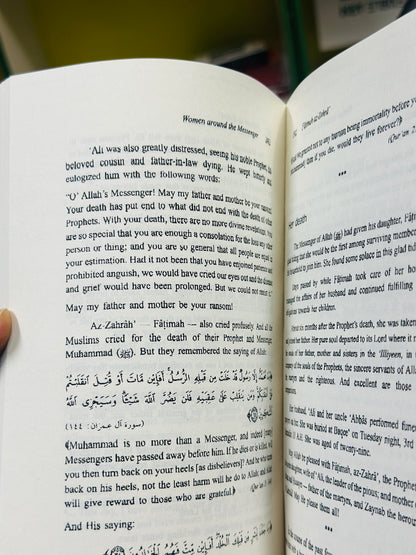 Women around the Messenger
'Ali was also greatly distressed, seeing his noble Prophet, his
beloved cousin and father-in-law dying. He wept bitterly and
eulogized him with the following words:
"O' Allah's Messenger! May my father and mother be your ransom!
Your death has put end to what did not end with the death of other
Prophets. With your death, there are no more divine revelations. You
are so special that you are enough a consolation for the loss any other
person or thing; and you are so general that all people are equal in
your estimation. Had it not been that you have enjoined patience and
prohibited anguish, we would have cried our eyes out and the disease
and grief would have been prolonged. But we could not resist it."
May my father and mother be your ransom!
Az-Zahrâh' — Fâṭimah — also cried profusely. And all the
Muslims cried for the death of their Prophet and Messenger
Muhammad (ﷺ). But they remembered the saying of Allah:
﴿وَمَا مُحَمَّدٌ إِلَّا رَسُولٌ قَدْ خَلَتْ مِن قَبْلِهِ الرُّسُلُ أَفَإِين مَّاتَ أَوْ قُتِلَ انقَلَبْتُمْ
عَلَىٰ أَعْقَابِكُمْ وَمَن يَنقَلِبْ عَلَىٰ عَقِبَيْهِ فَلَن يَضُرَّ اللَّهَ شَيْئًا وَسَيَجْزِي اللَّهُ
الشَّاكِرِينَ﴾
(سورة آل عمران: ١٤٤)
﴾Muhammad is no more than a Messenger, and indeed [many]
Messengers have passed away before him. If he dies or is killed, will
you then turn back on your heels [as disbelievers]? And he who turns
back on his heels, not the least harm will he do to Allah; and Allah
will give reward to those who are grateful.﴿
(Qur'an 3:
And His saying:
Fâṭimah az-Zahrâ'
granted not to any human being immortality before you
then if you die, would they live forever?﴿
(Qur'an
***
Her death
The Messenger of Allah (ﷺ) had given his daughter, Fâṭimah
that she would be the first among surviving members
to join him. She found some solace in this glad
Days passed while Fâṭimah took care of her
affairs of her husband and continued fulfilling
towards her children.
months after the Prophet's death, she was taken
Her pure soul departed to its Lord where it
of her father, mother and sisters in the 'Illiyeen, in
of the souls of the Prophets, the sincere servants of Allah
martyrs and the righteous. And excellent are those
Her husband, 'Ali and her uncle 'Abbâs performed
She was buried at Baqee' on Tuesday night, 3rd
11 AH. She was aged of twenty-nine.
May Allah be pleased with Fâṭimah, az-Zahrâ', the
wife of 'Ali, the leader of the pious; and mother
father of the martyrs, and Zaynab the heroine
May He please them all!
***